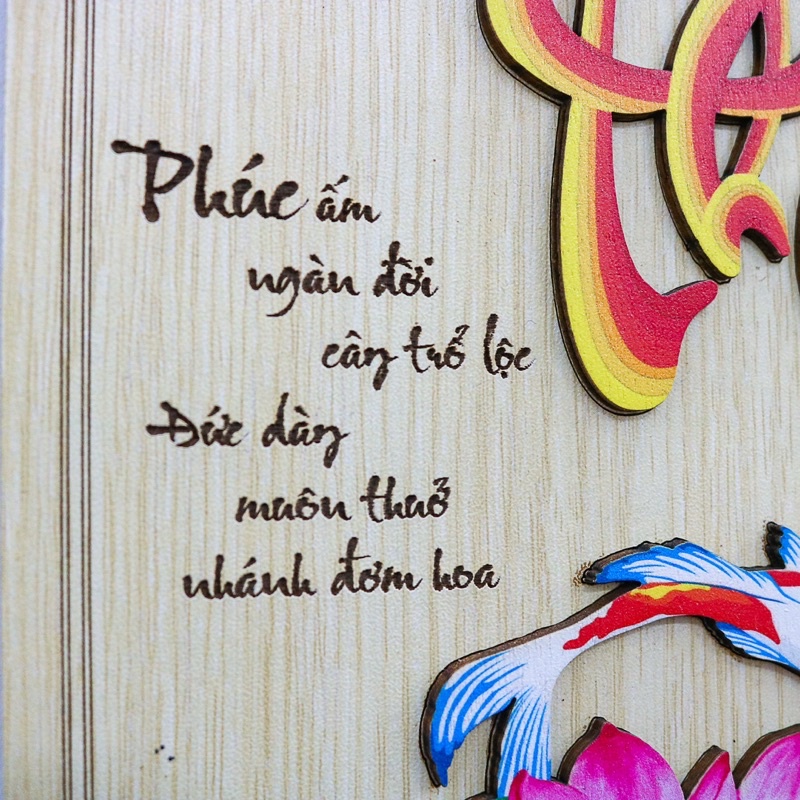 Phúc ấm
ngàn đời
cây trổ lộc
Đức dày
muôn thuở
nhánh đơm hoa